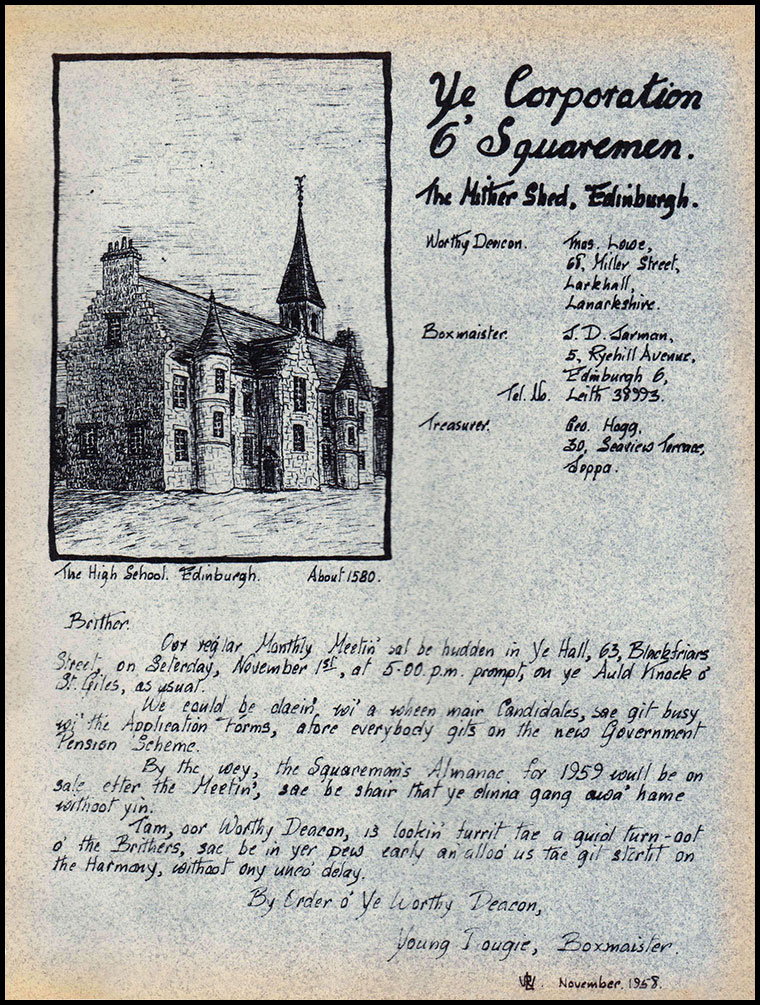 Ye Corporation
O' Squaremen.
The Mither Shed, Edinburgh.
Worthy Deacon. Thos. Lowe,
68, Miller Street,
Larkhall,
Lanarkshire.
Boxmaister. J. D. Jarman,
5, Ryehill Avenue,
Edinburgh 6,
Tel. No. Leith 38993.
Treasurer. Geo. Hogg,
30, Seaview Terrace,
Joppa.
The High School. Edinburgh. About 1580.
Brither.
Oor reg'lar Monthly Meetin' sal be hudden in Ye Hall, 63, Blackfriars
Street, on Seterday, November 1st, at 5.00. p.m. prompt, on ye Auld Knock o'
St. Giles, as usual.
We could be daein' wi' a wheen mair Candidates, sae git busy
wi' the Application Forms, afore everybody gits on the new Government
Pension Scheme.
By the wey, the Squareman's Almanac for 1959 wull be on
sale efter the Meetin', sae be shair that ye dinna gang awa' hame
withoot yin.
Tam, oor Worthy Deacon, is lookin' furrit tae a guid turn-oot
o' the Brithers, sae be in yer pew early an' alloo us tae git stertit on
the Harmony, withoot ony unco' delay.
By Order o' Ye Worthy Deacon,
Young Dougie, Boxmaister.
November. 1958.